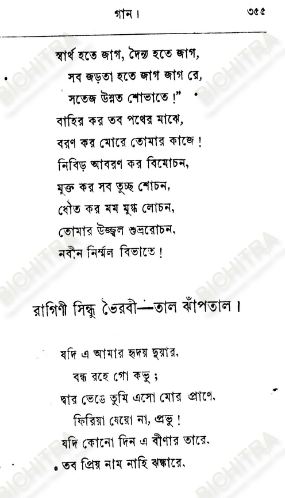 গান।
৩৫৫
স্বার্থ হতে জাগ, দৈন্য হতে জাগ,
সব জড়তা হতে জাগ জাগ রে,
সতেজ উন্নত শোভাতে!"
বাহির কর তব পথের মাঝে,
বরণ কর মোরে তোমার কাজে!
নিবিড় আবরণ কর বিমোচন,
মুক্ত কর সব তুচ্ছ শোচন,
ধৌত কর মম মুগ্ধ লোচন,
তোমার উজ্জ্বল শুভ্ররোচন,
নবীন নির্ম্মল বিভাতে!
রাগিণী সিন্ধু ভৈরবী—তাল ঝাঁপতাল।
যদি এ আমার হৃদয় দুয়ার,
বন্ধ রহে গো কভু;
দ্বার ভেঙে তুমি এসো মোর প্রাণে,
ফিরিয়া যেয়ো না, প্রভু!
যদি কোনো দিন এ বীণার তারে,
তব প্রিয় নাম নাহি ঝঙ্কারে,
BICHITRA